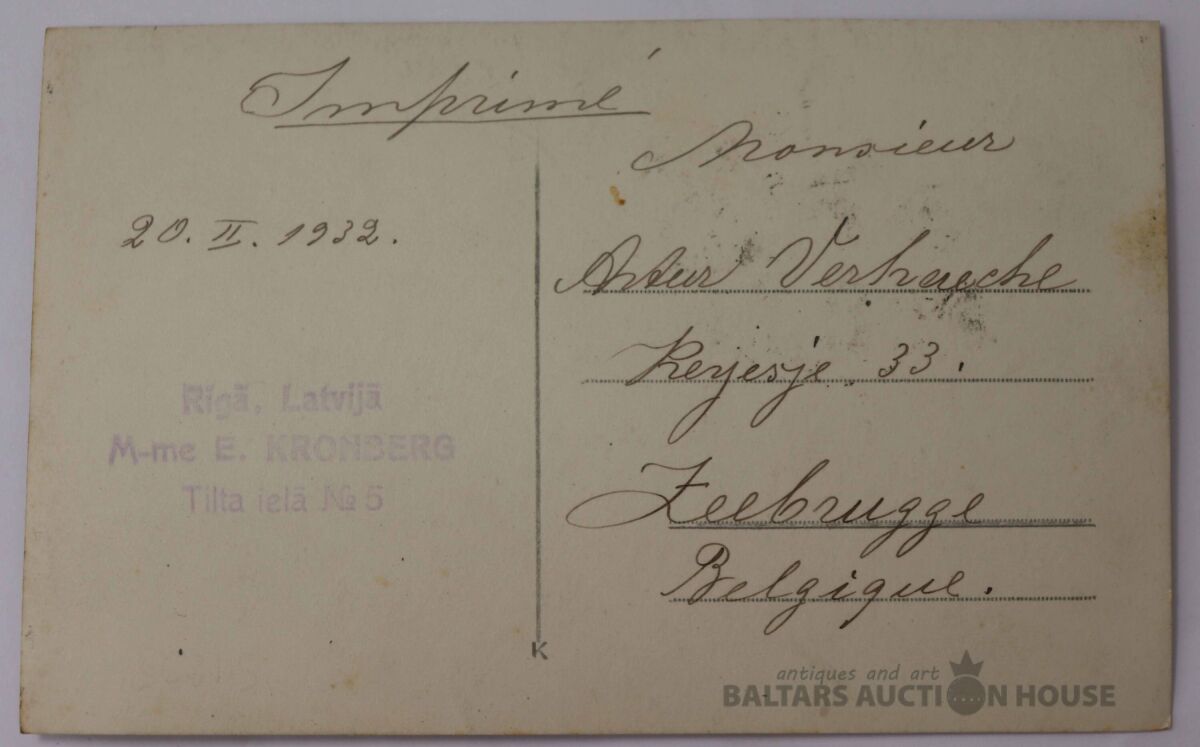 Imprimé
20. II. 1932.
Rīgā, Latvijā
M-me E. KRONBERG
Tilta ielā № 5
Monsieur
Artur Verhaeche
Reyesje 33.
Zeebrugge
Belgique.
K
antiques and art
BALTARS AUCTION HOUSE